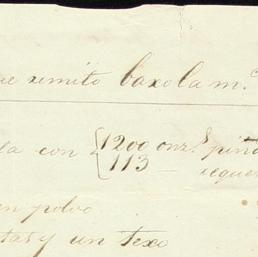 remito baxo la m.ª
la con { 1200 onz.s pina
113 —
en polvo
tas y un Texo